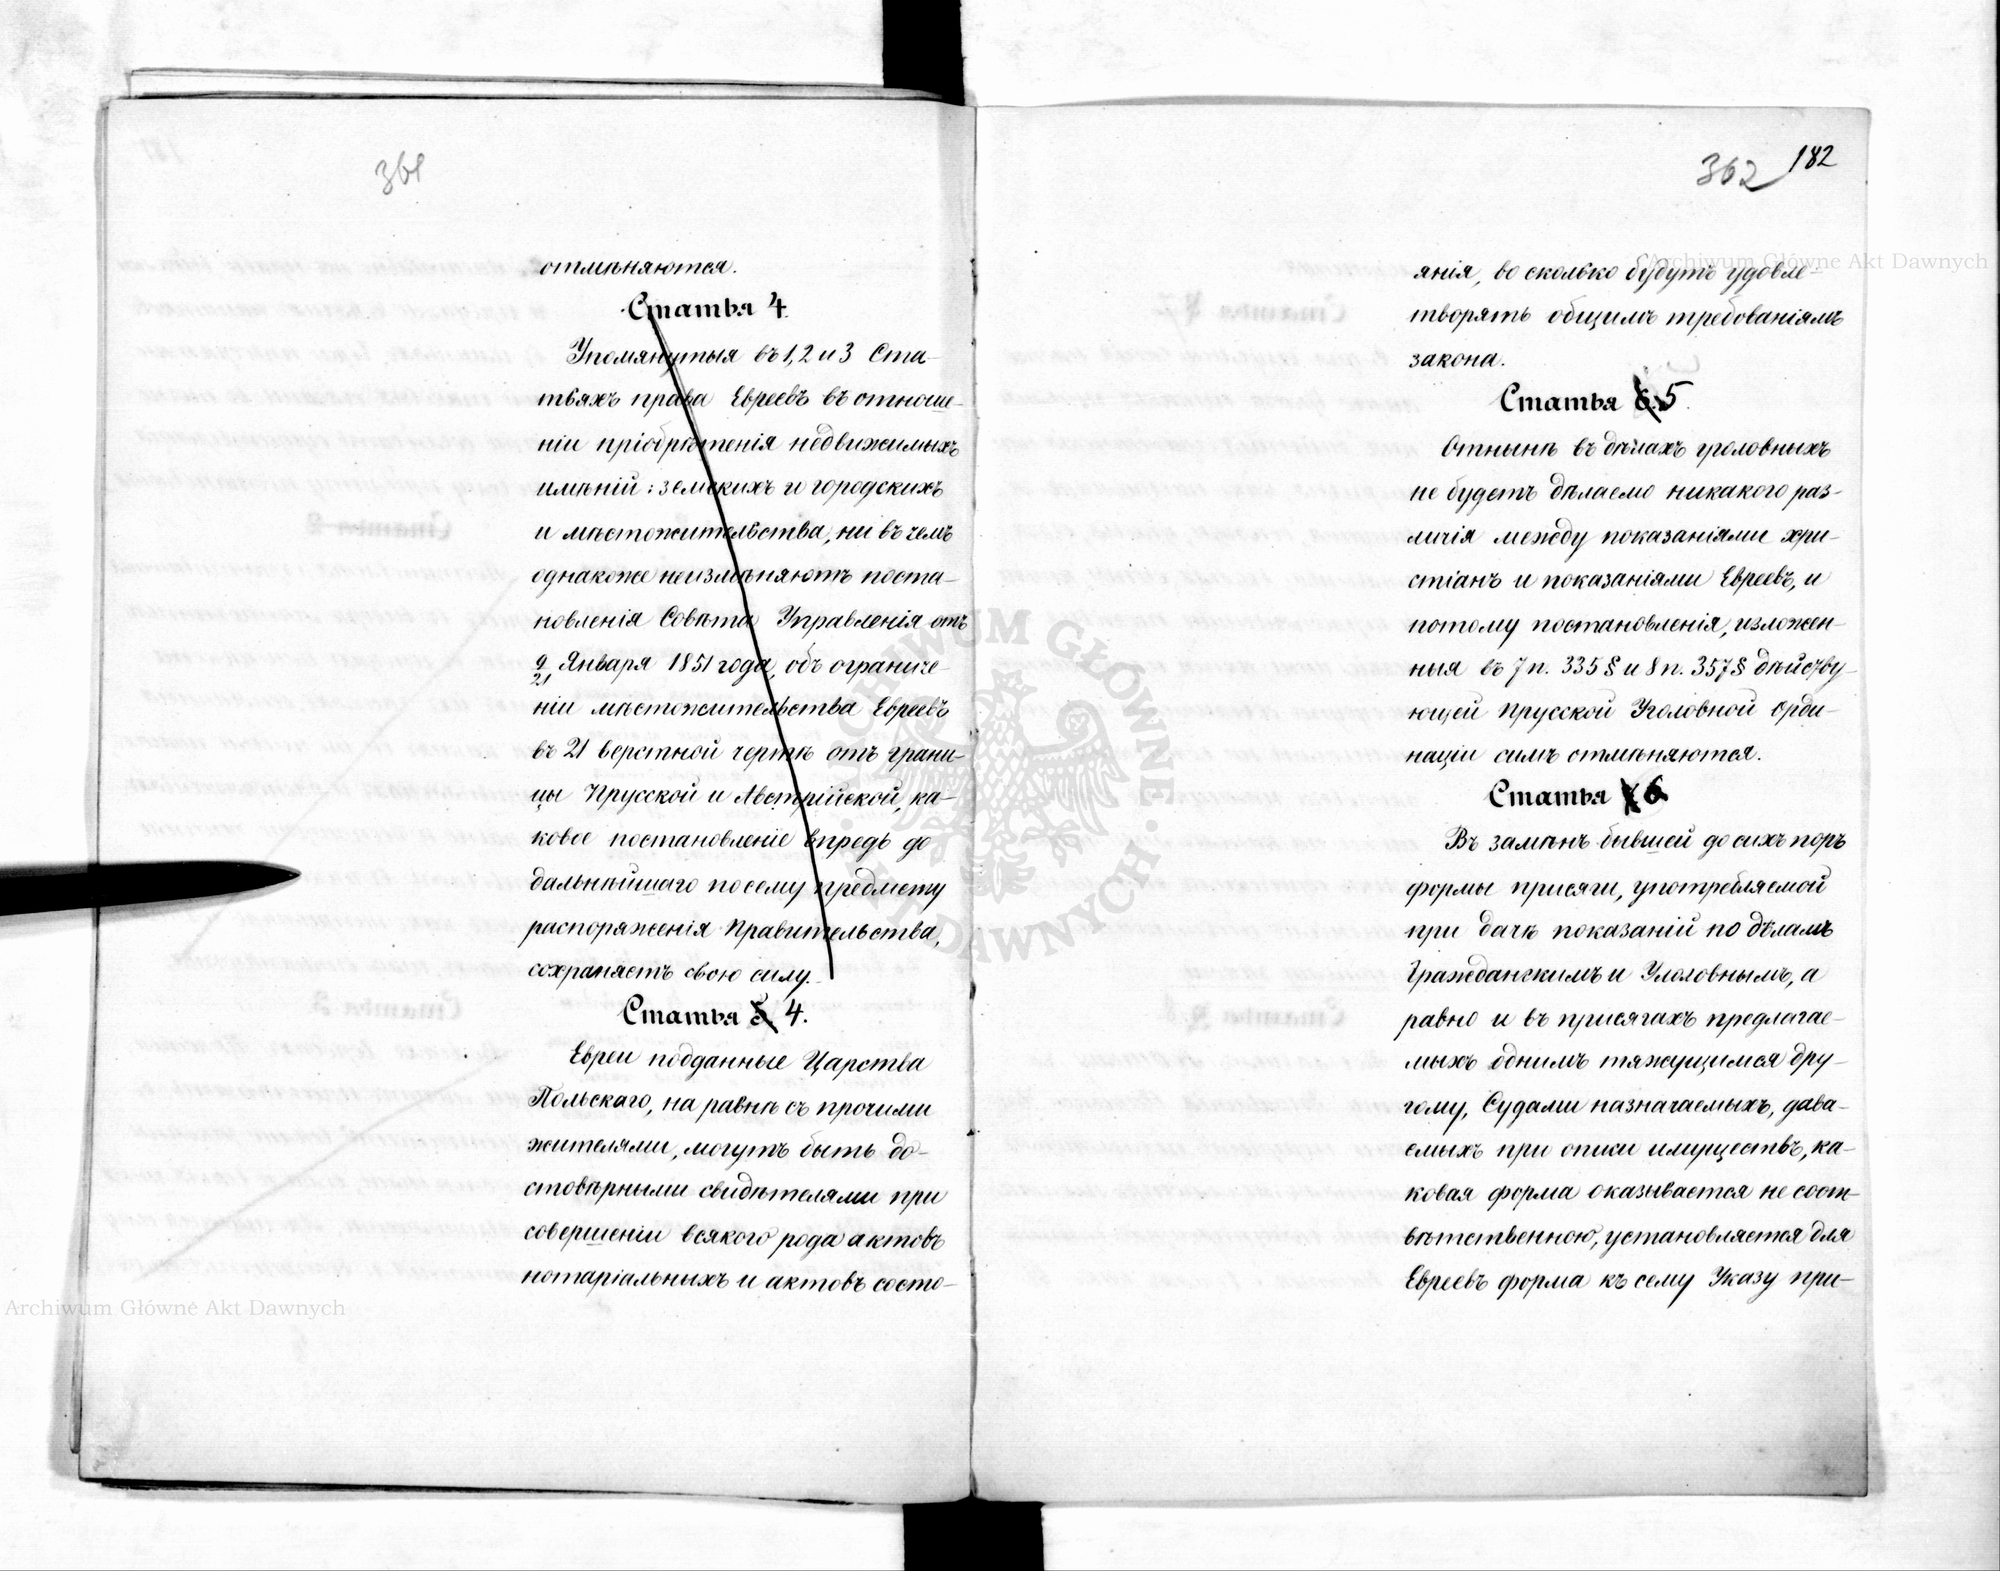 361
отмѣняются.
Статья 4.
Упомянутыя въ 1, 2 и 3 Ста-
тьяхъ права Евреевъ въ отноше-
ніи пріобрѣтенія недвижимыхъ
имѣній: земскихъ и городскихъ
и мѣстожительства, ни въ чемъ
однакоже неизмѣняютъ поста-
новленія Совѣта Управленія отъ
9/21 Января 1851 года, объ ограниче-
ніи мѣстожительства Евреевъ
въ 21 верстной чертѣ отъ грани-
цы Прусской и Австрійской, ка-
ковое постановленіе впредь до
дальнѣйшаго посему предмету
распоряженія Правительства,
сохраняетъ свою силу.
Статья 5. 4.
Евреи подданные Царства
Польскаго, на равнѣ съ прочими
жителями, могутъ быть до-
стовѣрными свидѣтелями при
совершеніи всякого рода актовъ
нотаріальныхъ и актовъ состо-
362 182
янія, во сколько будутъ удовле-
творять общимъ требованіямъ
закона.
Статья 6. 5.
Отнынѣ въ дѣлахъ уголовныхъ
не будетъ дѣлаемо никакого раз-
личія между показаніями хри-
стіанъ и показаніями Евреевъ, и
потому постановленія, изложен-
ныя въ 7 п. 335 § и 8 п. 357 § дѣйству-
ющей Прусской Уголовной Орди-
націи симъ отмѣняются.
Статья 6
Въ замѣнъ бывшей до сихъ поръ
формы присяги, употребляемой
при дачѣ показаній по дѣламъ
Гражданскимъ и Уголовнымъ, а
равно и въ присягахъ предлагае-
мыхъ однимъ тяжущимся дру-
гому, Судами назначаемыхъ, дава-
емыхъ при описи имуществъ, ка-
ковая форма оказывается не соот-
вѣтственною, установляется для
Евреевъ форма къ сему Указу при-
Archiwum Główne Akt Dawnych
ARCHIWUM GŁÓWNE AKT DAWNYCH
Archiwum Główne Akt Dawnych